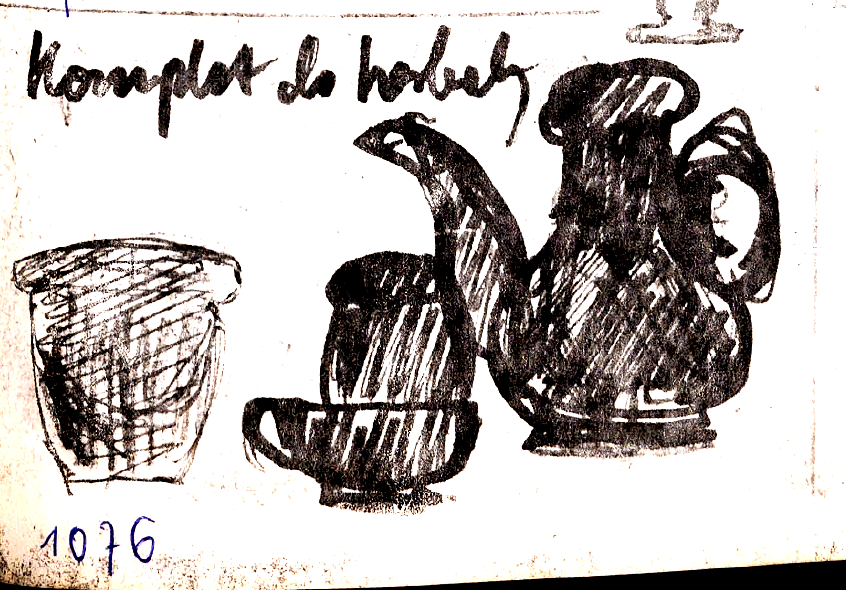 Komplet do herbaty
1076